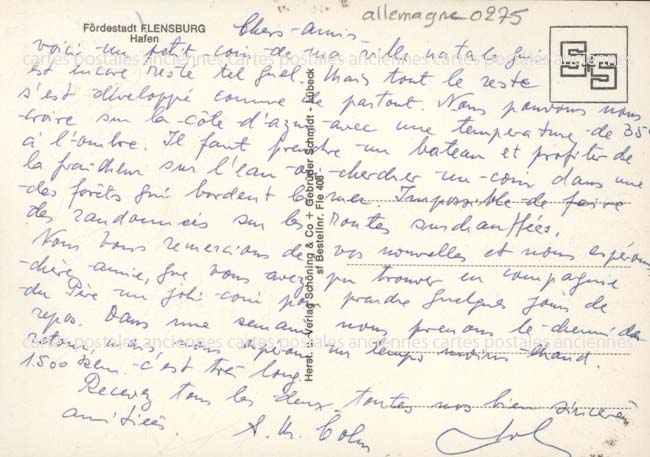 Fördestadt FLENSBURG
Hafen
allemagne 0275
Chers amis
voici un petit coin de ma ville natale qui
est encore resté tel quel. Mais tout le reste
s'est développé comme partout. Nous pouvons nous
croire sur la côte d'azur avec une température de 35°
à l'ombre. Il faut prendre un bateau et profiter de
la fraîcheur sur l'eau ou chercher un coin dans une
des forêts qui bordent la mer. Impossible de faire
des randonnées sur les routes surchauffées.
Nous vous remercions de vos nouvelles et nous espérons
chère amie, que vous avez pu trouver en compagnie
du Père un joli coin pour prendre quelques jours de
repos. Dans une semaine nous prenons le chemin de
retour, mais nous espérons un temps moins chaud.
1.500 km - c'est très long.
Recevez tous les deux, toutes nos bien sincères
amitiés.
Herst. u. Verlag Schöning & Co + Gebrüder Schmidt - Lübeck
sf Bestellnr. Fle 408
cartes postales anciennes cartes postales anciennes cartes postales anciennes